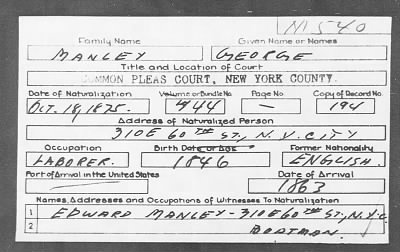 M540
Family Name Given Name or Names
MANLEY GEORGE
Title and Location of Court
COMMON PLEAS COURT, NEW YORK COUNTY.
Date of Naturalization Volume or Bundle No. Page No. Copy of Record No.
Oct. 18, 1875. #44 — 194
Address of Naturalized Person
310 E 60TH ST., N.Y. CITY
Occupation Birth Date or Age Former Nationality
LABORER. 1846 ENGLISH.
Port of Arrival in the United States Date of Arrival
1863
Names, Addresses and Occupations of Witnesses To Naturalization
1 EDWARD MANLEY - 310 E 60TH ST., N.Y.C
2 BOATMAN.